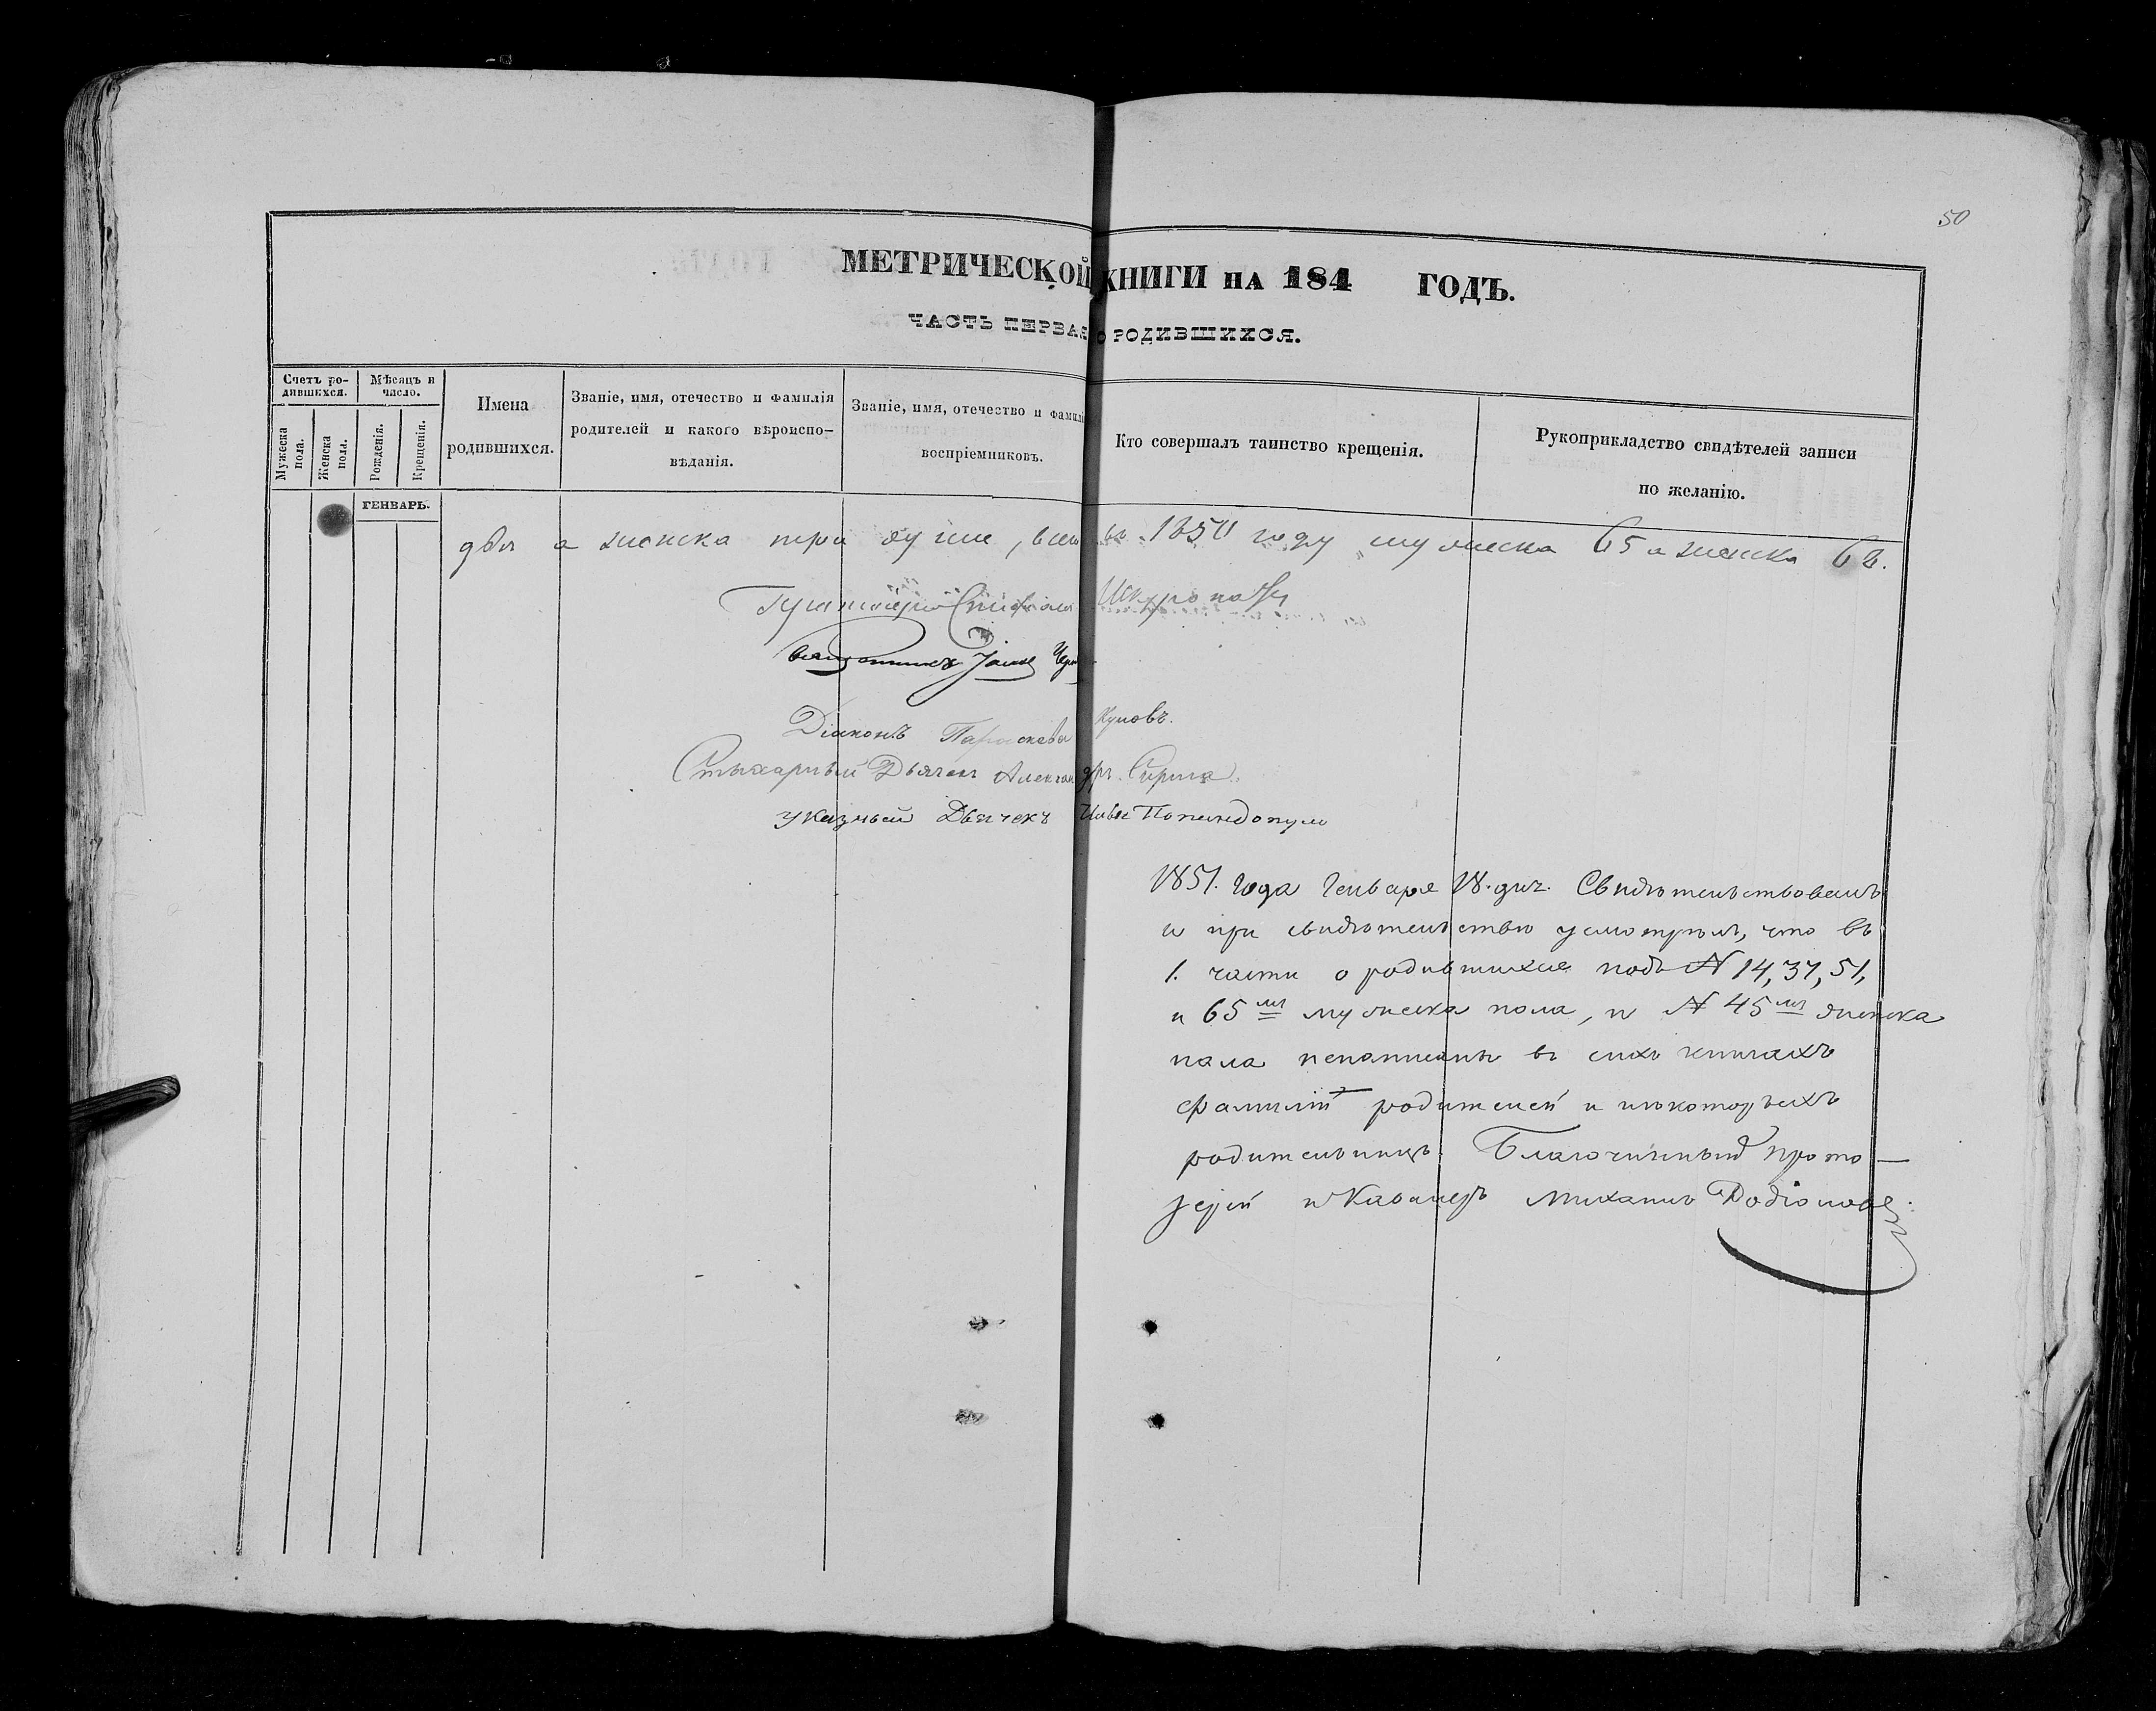 50
МЕТРИЧЕСКОЙ КНИГИ НА 184 ГОДЪ.
ЧАСТЬ ПЕРВАЯ О РОДИВШИХСЯ.
Счетъ ро-
дившихся.
Мужеска
пола.
Женска
пола.
Мѣсяцъ и
число.
Рожденія.
Крещенія.
Имена
родившихся.
Званіе, имя, отечество и фамилія
родителей и какого вѣроиспо-
вѣданія.
Званіе, имя, отечество и фамилі
воспріемниковъ.
Кто совершалъ таинство крещенія.
Рукоприкладство свидѣтелей записи
по желанію.
ГЕНВАРЬ.
два а женска три души, въ 1850 году мужеска 65 а женска 62.
Діаконъ Параскева
Стихарный Дьячекъ Александръ
указный Дьячекъ Илья Попандопуло
1851. года Генваря 18. дня. Свидѣтельствовалъ
и при свидѣтельствѣ усмотрѣлъ, что въ
1. части о родившихся подъ N 14, 37, 51,
и 65мъ мужеска пола, и N 45мъ женска
пола ненаписаны въ сихъ книгахъ
фамиліи родителей и нѣкоторыхъ
родительницъ. Благочинный Прото-
іерей и Кавалеръ Михаилъ Родіоновъ.